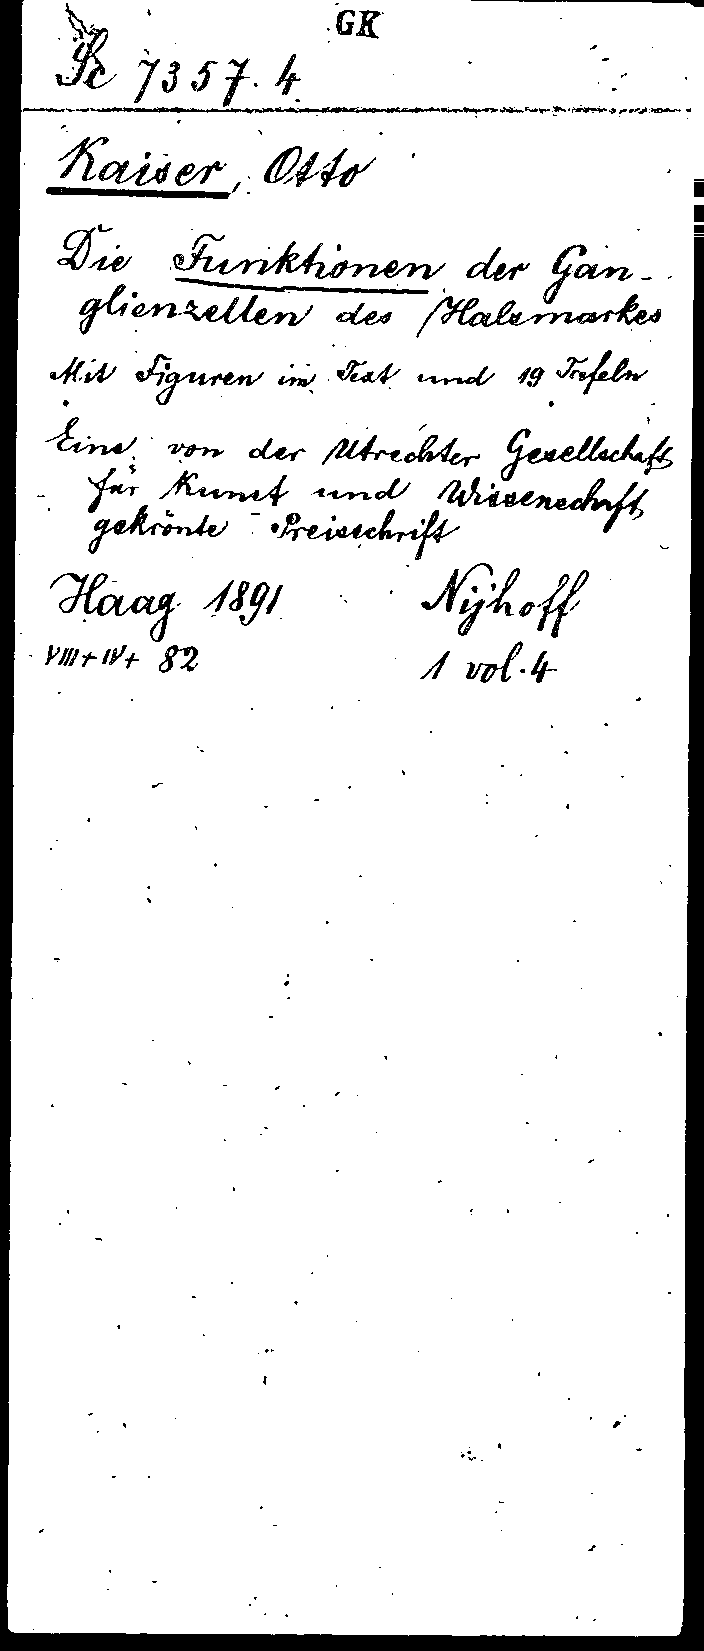 GK
Sc 7357.4
Kaiser, Otto
Die Funktionen der Gan-
glienzellen des Halsmarkes
Mit Figuren im Text und 19 Tafeln
Eine von der Utrechter Gesellschaft
für Kunst und Wissenschaft
gekrönte Preisschrift
Haag 1891 Nijhoff
VIII + IV + 82 1 vol. 4